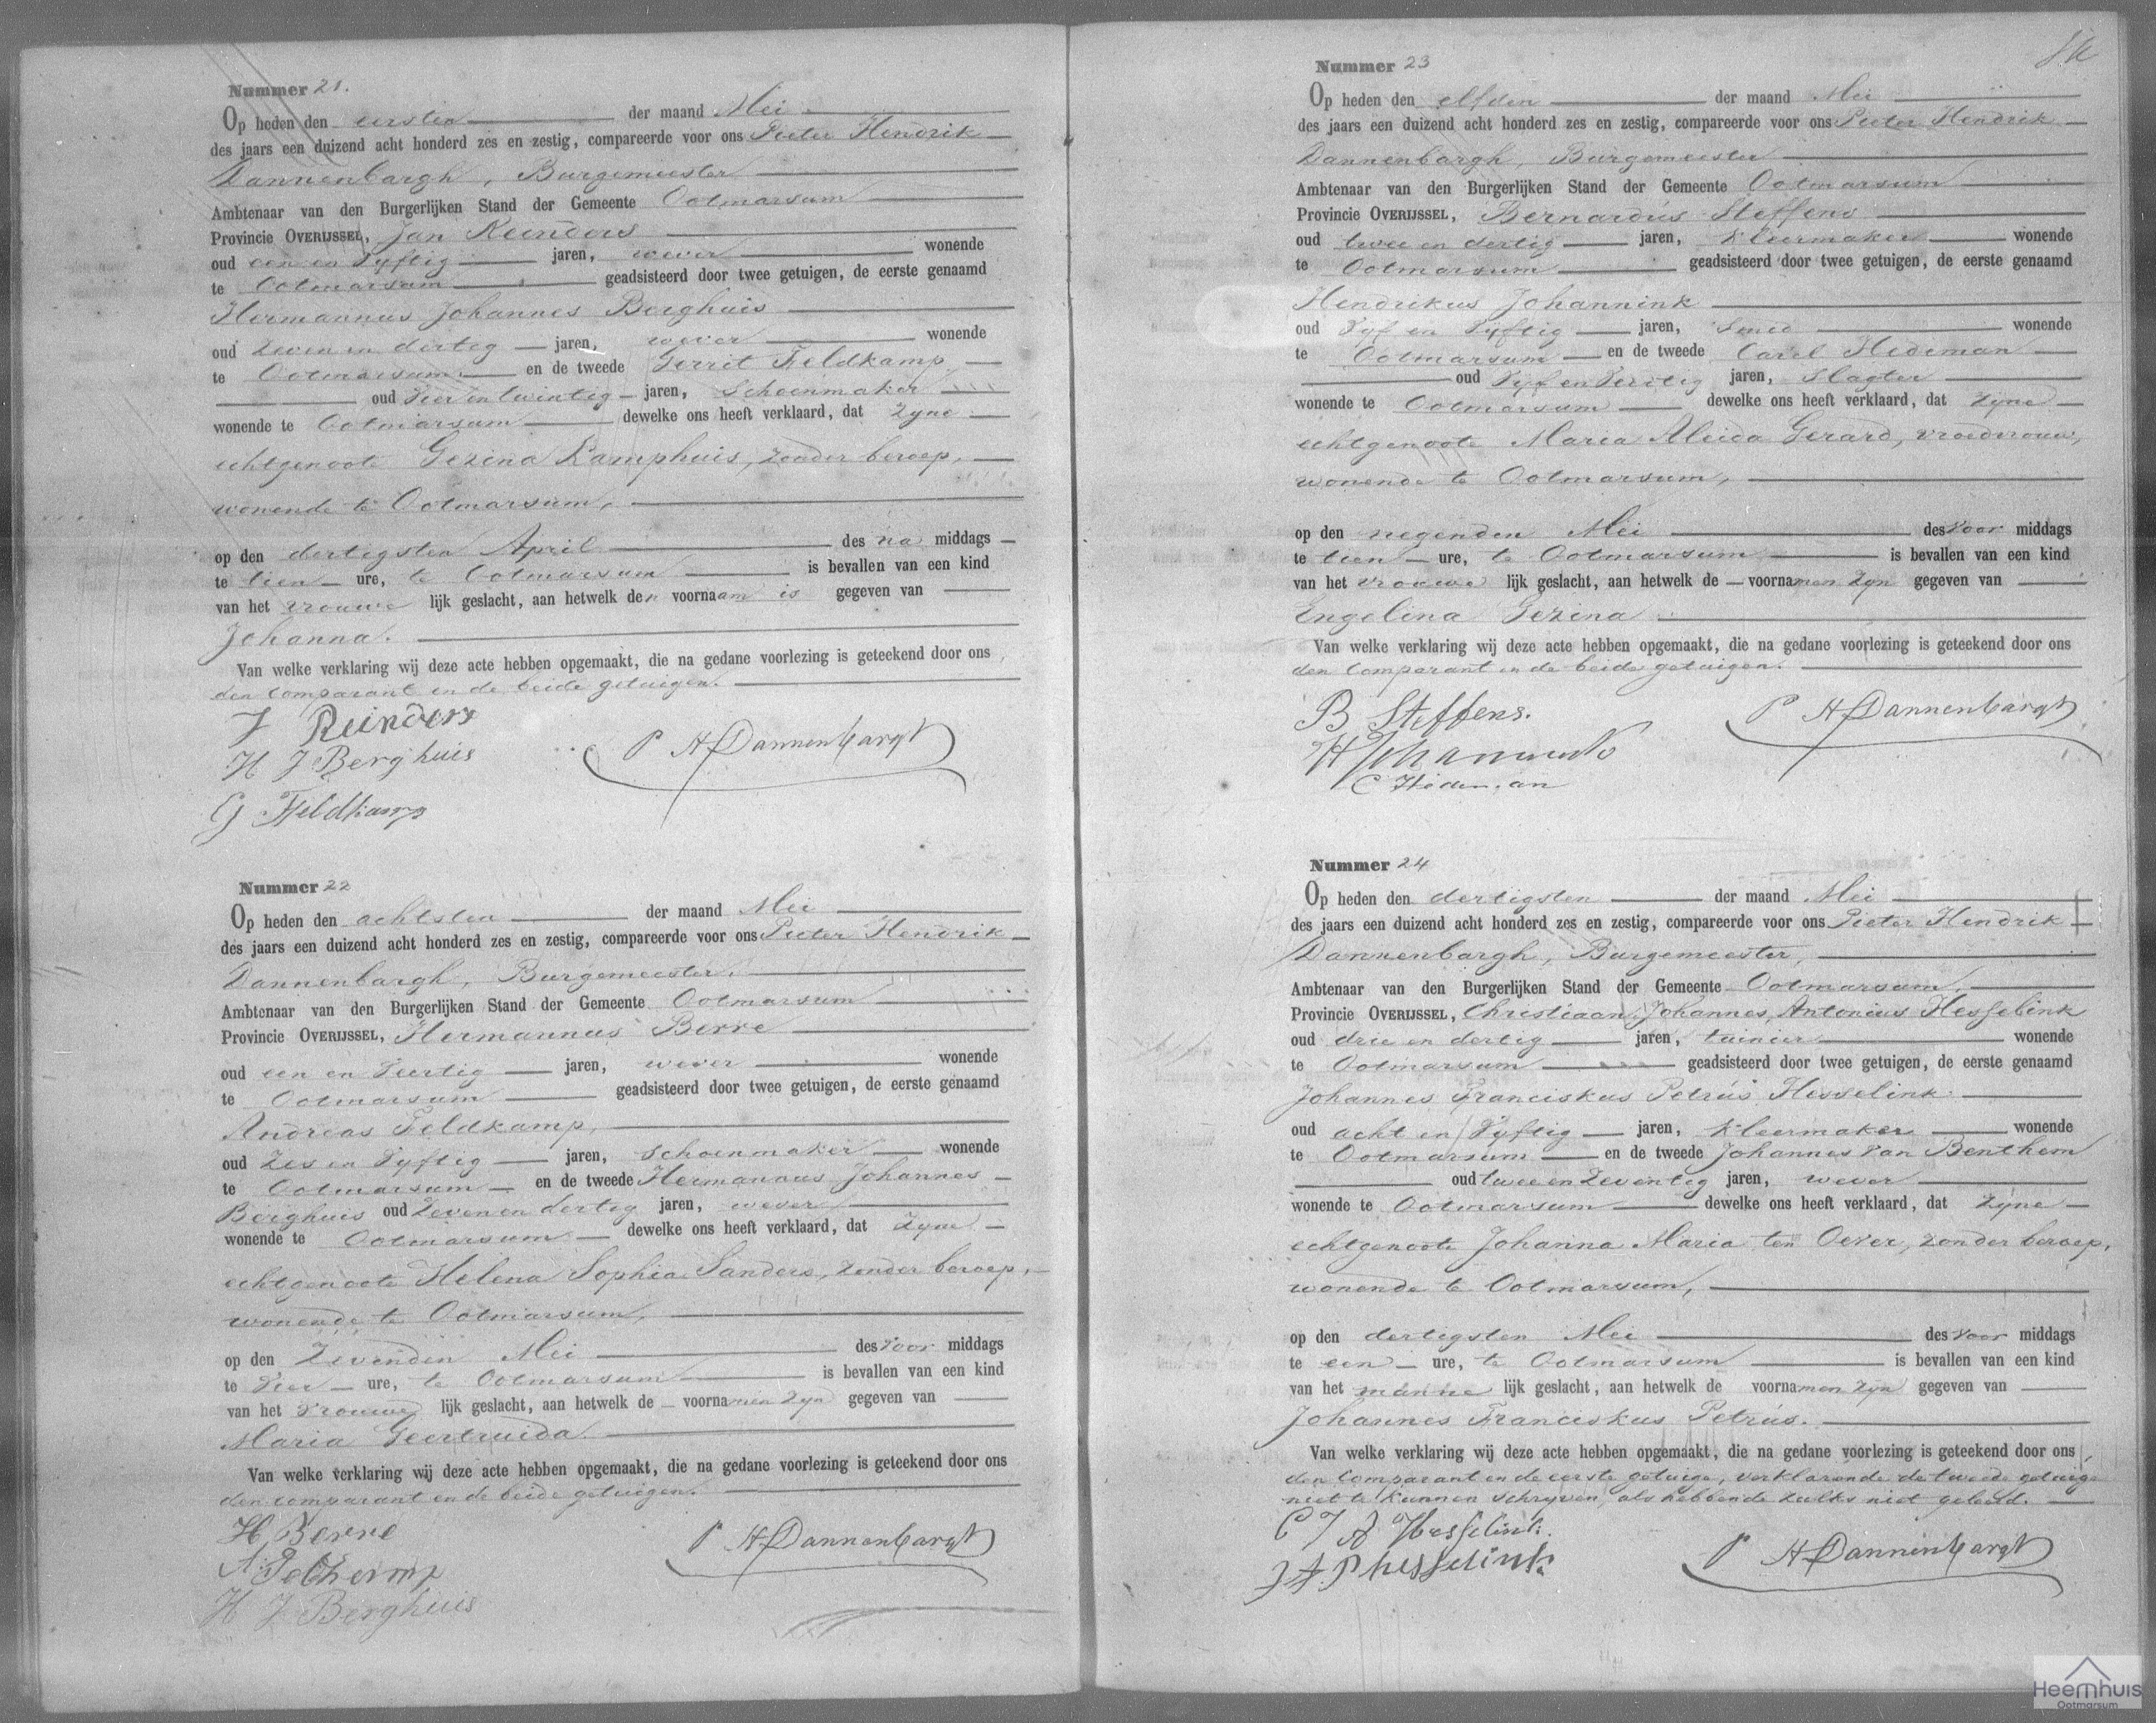 Nummer 21.
Op heden den eersten der maand Mei
des jaars een duizend acht honderd zes en zestig, compareerde voor ons Pieter Hendrik
Dannenbargh, Burgemeester
Ambtenaar van den Burgerlijken Stand der Gemeente Ootmarsum
Provincie OVERIJSSEL, Jan Reinders
oud een en vyftig jaren, wever wonende
te Ootmarsum geadsisteerd door twee getuigen, de eerste genaamd
Hermannus Johannes Berghuis
oud zeven en dertig jaren, wever wonende
te Ootmarsum en de tweede Gerrit Feldkamp
oud vier en twintig jaren, schoenmaker
wonende te Ootmarsum dewelke ons heeft verklaard, dat zyne
echtgenoote Gezina Kamphuis, zonder beroep,
wonende te Ootmarsum,
op den dertigsten April des na middags
te tien ure, te Ootmarsum is bevallen van een kind
van het vrouwe lijk geslacht, aan hetwelk den voornaam is gegeven van
Johanna.
Van welke verklaring wij deze acte hebben opgemaakt, die na gedane voorlezing is geteekend door ons,
den comparant en de beide getuigen.
J Reinders
H J Berghuis
P H Dannenbargh
G Feldkamp
Nummer 22
Op heden den achtsten der maand Mei
des jaars een duizend acht honderd zes en zestig, compareerde voor ons Pieter Hendrik
Dannenbargh, Burgemeester,
Ambtenaar van den Burgerlijken Stand der Gemeente Ootmarsum
Provincie OVERIJSSEL, Hermannus Berre
oud een en veertig jaren, wever wonende
te Ootmarsum geadsisteerd door twee getuigen, de eerste genaamd
Andreas Feldkamp,
oud zes en vyftig jaren, schoenmaker wonende
te Ootmarsum en de tweede Hermannus Johannes
Berghuis oud zeven en dertig jaren, wever
wonende te Ootmarsum dewelke ons heeft verklaard, dat zyne
echtgenoote Helena Sophia Sanders, zonder beroep,
wonende te Ootmarsum,
op den zevenden Mei des voor middags
te vier ure, te Ootmarsum is bevallen van een kind
van het vrouwe lijk geslacht, aan hetwelk de voornamen zyn gegeven van
Maria Geertruida.
Van welke verklaring wij deze acte hebben opgemaakt, die na gedane voorlezing is geteekend door ons
den comparant en de beide getuigen.
H Berre
P H Dannenbargh
H J Berghuis
Nummer 23
Op heden den elfden der maand Mei
des jaars een duizend acht honderd zes en zestig, compareerde voor ons Pieter Hendrik
Dannenbargh, Burgemeester
Ambtenaar van den Burgerlijken Stand der Gemeente Ootmarsum
Provincie OVERIJSSEL, Bernardus Steffens
oud twee en dertig jaren, kleermaker wonende
te Ootmarsum geadsisteerd door twee getuigen, de eerste genaamd
Hendrikus Johannink
oud vyf en vyftig jaren, smid wonende
te Ootmarsum en de tweede Carel Hedeman
oud vyf en veertig jaren, slagter
wonende te Ootmarsum dewelke ons heeft verklaard, dat zyne
echtgenoote Maria Aleida Gerard, vroedvrouw,
wonende te Ootmarsum,
op den negenden Mei des voor middags
te tien ure, te Ootmarsum is bevallen van een kind
van het vrouwe lijk geslacht, aan hetwelk de voornamen zyn gegeven van
Engelina Gezina
Van welke verklaring wij deze acte hebben opgemaakt, die na gedane voorlezing is geteekend door ons
den comparant en de beide getuigen.
B Steffens.
P H Dannenbargh
H Johannink
C Hedeman
Nummer 24
Op heden den dertigsten der maand Mei
des jaars een duizend acht honderd zes en zestig, compareerde voor ons Pieter Hendrik
Dannenbargh, Burgemeester,
Ambtenaar van den Burgerlijken Stand der Gemeente Ootmarsum,
Provincie OVERIJSSEL, Christiaan Johannes Antonius Hesselink
oud drie en dertig jaren, tuinier wonende
te Ootmarsum geadsisteerd door twee getuigen, de eerste genaamd
Johannes Franciskus Petrus Hesselink
oud acht en vyftig jaren, kleermaker wonende
te Ootmarsum en de tweede Johannes van Benthem
oud twee en zeventig jaren, wever
wonende te Ootmarsum dewelke ons heeft verklaard, dat zyne
echtgenoote Johanna Maria ten Oever, zonder beroep,
wonende te Ootmarsum,
op den dertigsten Mei des voor middags
te een ure, te Ootmarsum is bevallen van een kind
van het manne lijk geslacht, aan hetwelk de voornamen zyn gegeven van
Johannes Franciskus Petrus.
Van welke verklaring wij deze acte hebben opgemaakt, die na gedane voorlezing is geteekend door ons,
den comparant en de eerste getuige, verklarende de tweede getuige
niet te kunnen schryven, als hebbende zulks niet geleerd.
C J A Hesselink.
J F P hesselink
P H Dannenbargh
Heemhuis
Ootmarsum